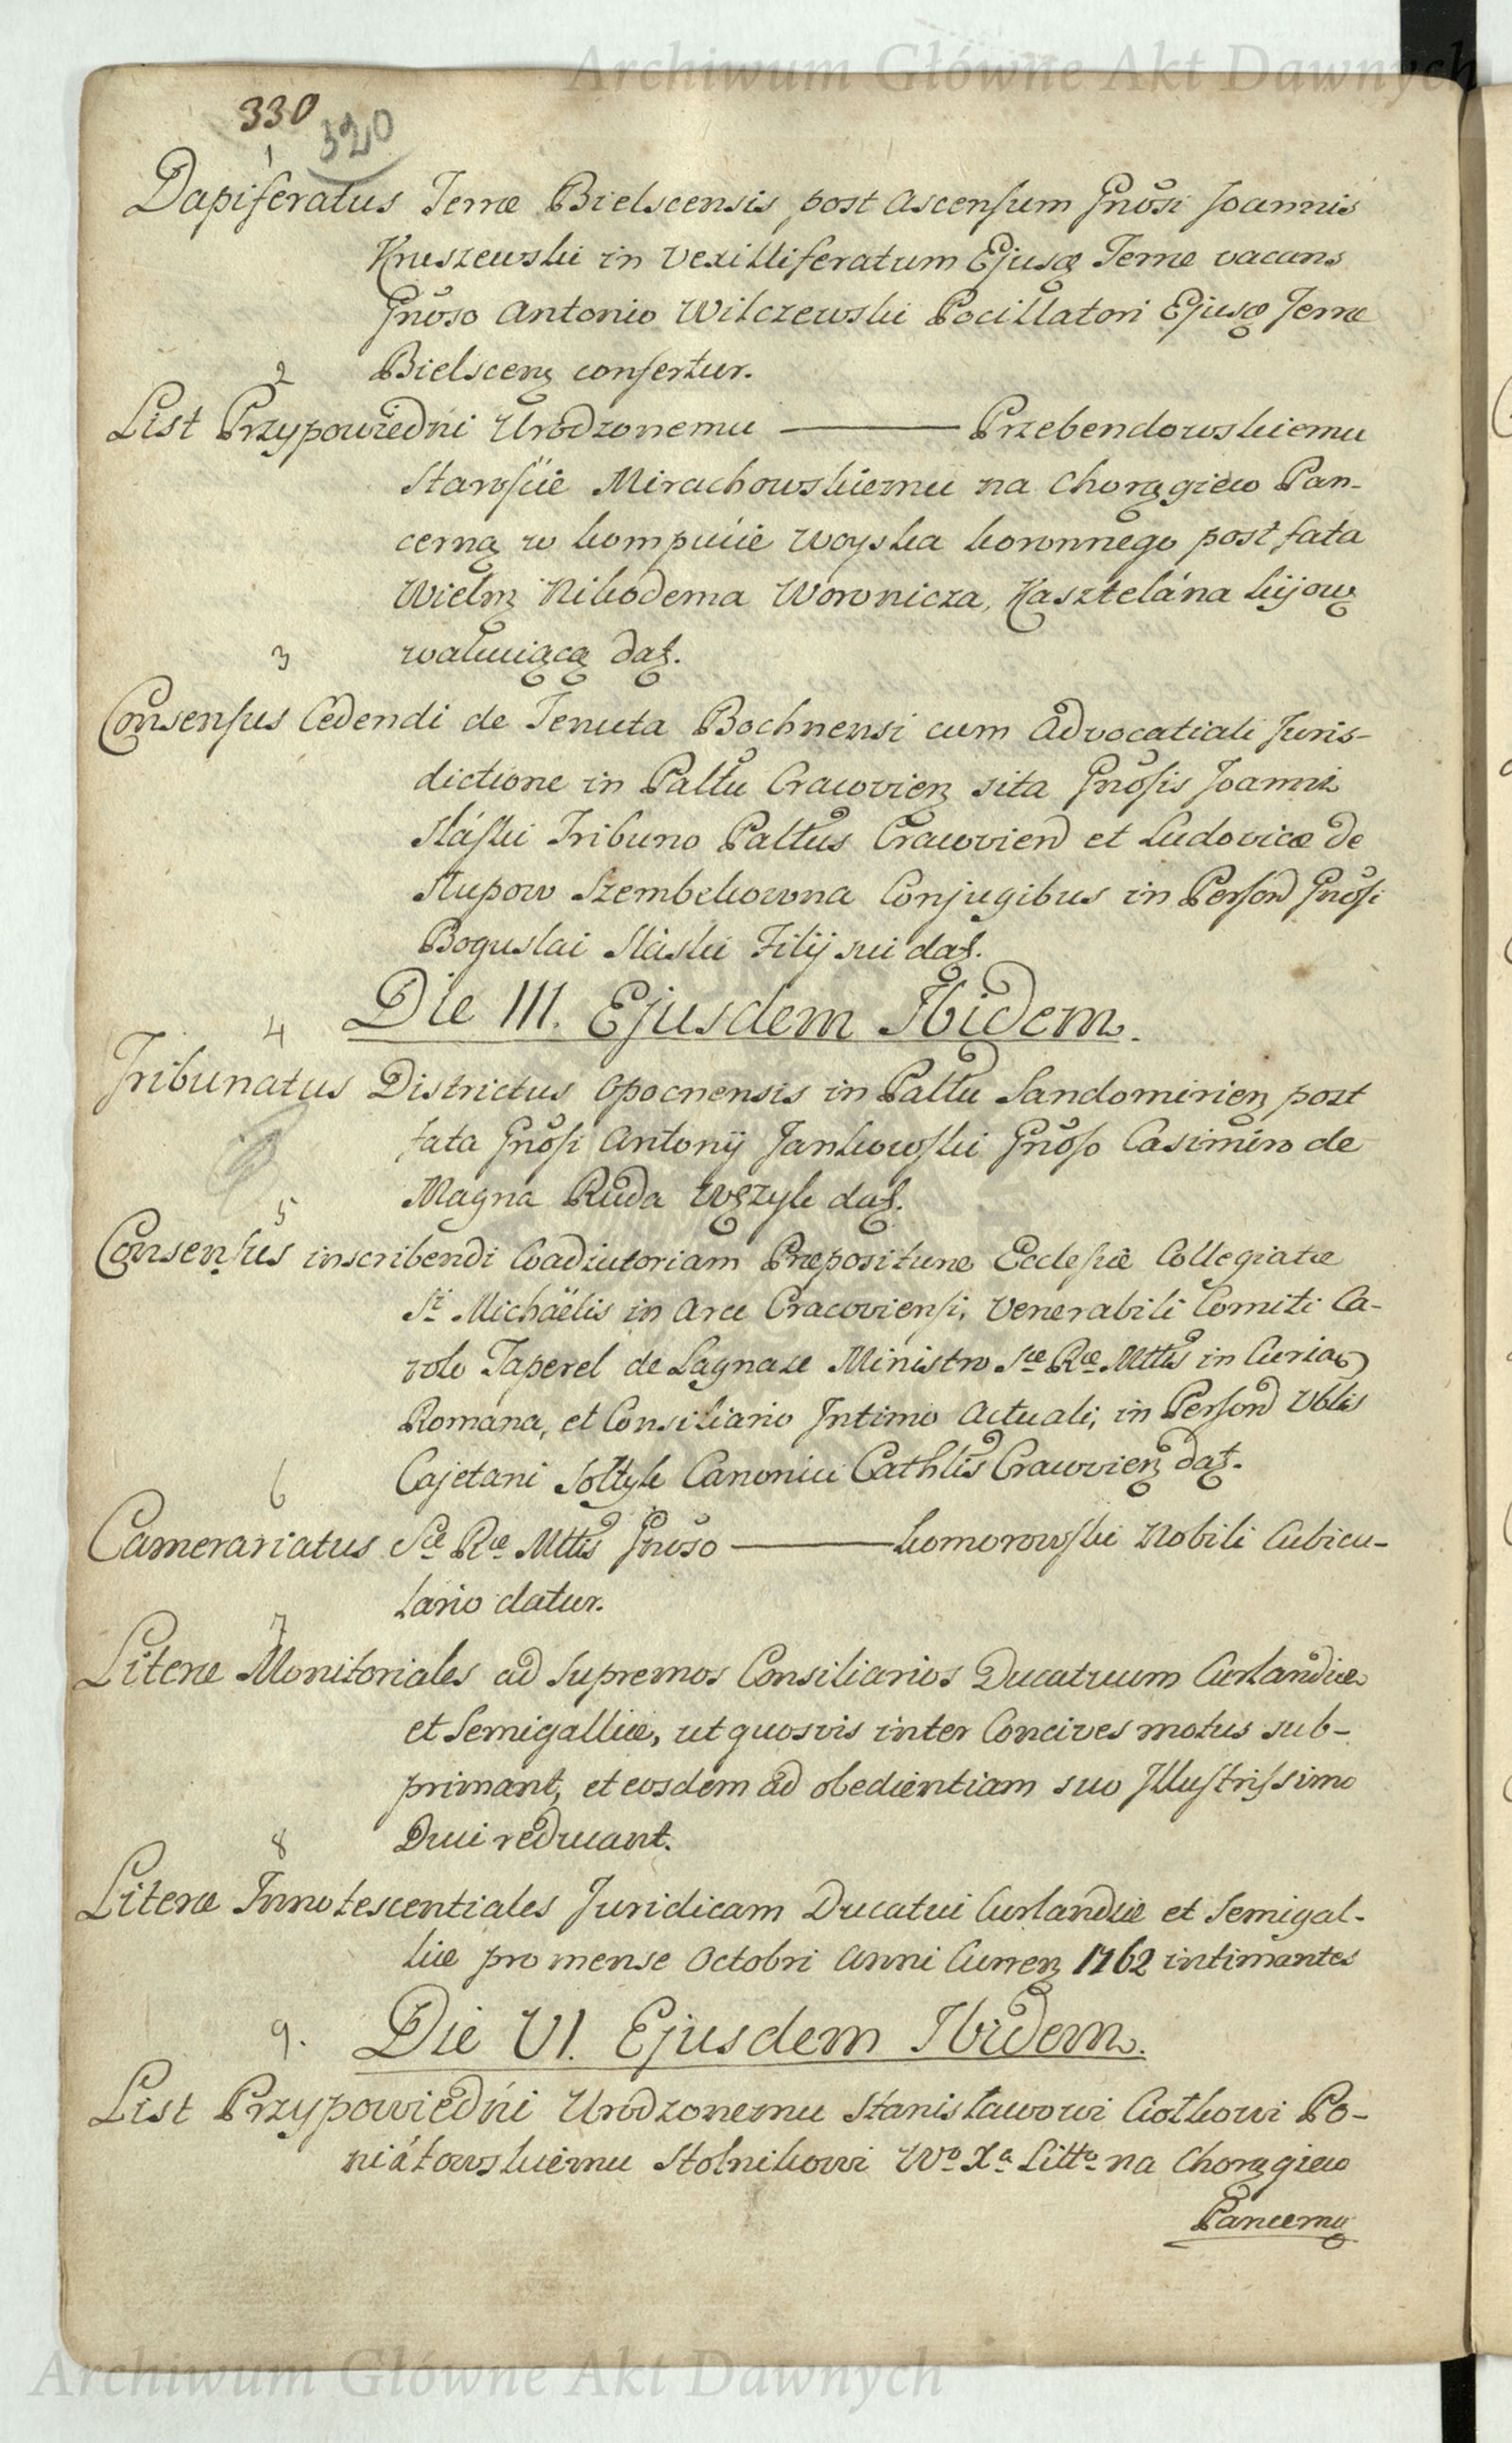 Archiwum Główne Akt Dawnych
330
320
1
Dapiferatus Terræ Bielscensis post ascensum Gnosi Joannis
Kruszewski in Vexilliferatum Ejusq Terræ vacans
Gnoso Antonio Wilczewski Pocillatori Ejusq Terræ
Bielscen confertur.
2
List Przypowiedni Urodzonemu ——— Przebendowskiemu
Starośćie Mirachowskiemu na Chorągiew Pan-
cerną w kompućie Woyska koronnego post fata
Wielm Nikodema Woronicza, Kasztelána kijow
wakuiącą dat.
3
Consensus Cedendi de Tenuta Bochnensi cum Advocatiali Juris-
dictione in Palttu Cracovien sita Gnosis Joanni
Sláski Tribuno Palttus Cracovien et Ludovicæ de
Słupow Szembekowna Conjugibus in Person Gnosi
Boguslai Sláski Filij sui dat.
Die III. Ejusdem Ibidem.
4
Tribunatus Districtus Opocnensis in Palttu Sandomirien post
fata Gnosi Antonij Jankowski Gnoso Casimiro de
Magna Ruda Wężyk dat.
5
Consensus inscribendi Coadiutoriam Præpositune Ecclesiæ Collegiatæ
Sti Michaëlis in Arce Cracoviensi, Venerabili Comiti Ca-
rolo Taperel de Lagnasc Ministro Sæ Ræ Mttis in Curia
Romana, et Consiliario Intimo Actuali, in Person Vblis
Cajetani Sołtyk Canonici Cathlis Cracovien dat.
6
Camerariatus Sæ Ræ Mttis Gnoso ——— komorowski Nobili Cubicu-
lario datur.
7
Literæ Monitoriales ad Supremos Consiliarios Ducatuum Curlandiæ
et Semigalliæ, ut quosvis inter Concives motus sub-
primant, et eosdem ad obedientiam suo Illustrissimo
Duci reducant.
8
Literæ Innotescentiales Juridicam Ducatui Curlandiæ et Semigal-
liæ pro mense Octobri Anni Curren 1762 intimantes
Die VI. Ejusdem Ibidem.
9.
List Przypowiedńi Urodzonemu Stanisławowi Ciołkowi Po-
niátowskiemu Stolnikowi Wo Xa Litto na Chorągiew
Pancerną
Archiwum Główne Akt Dawnych